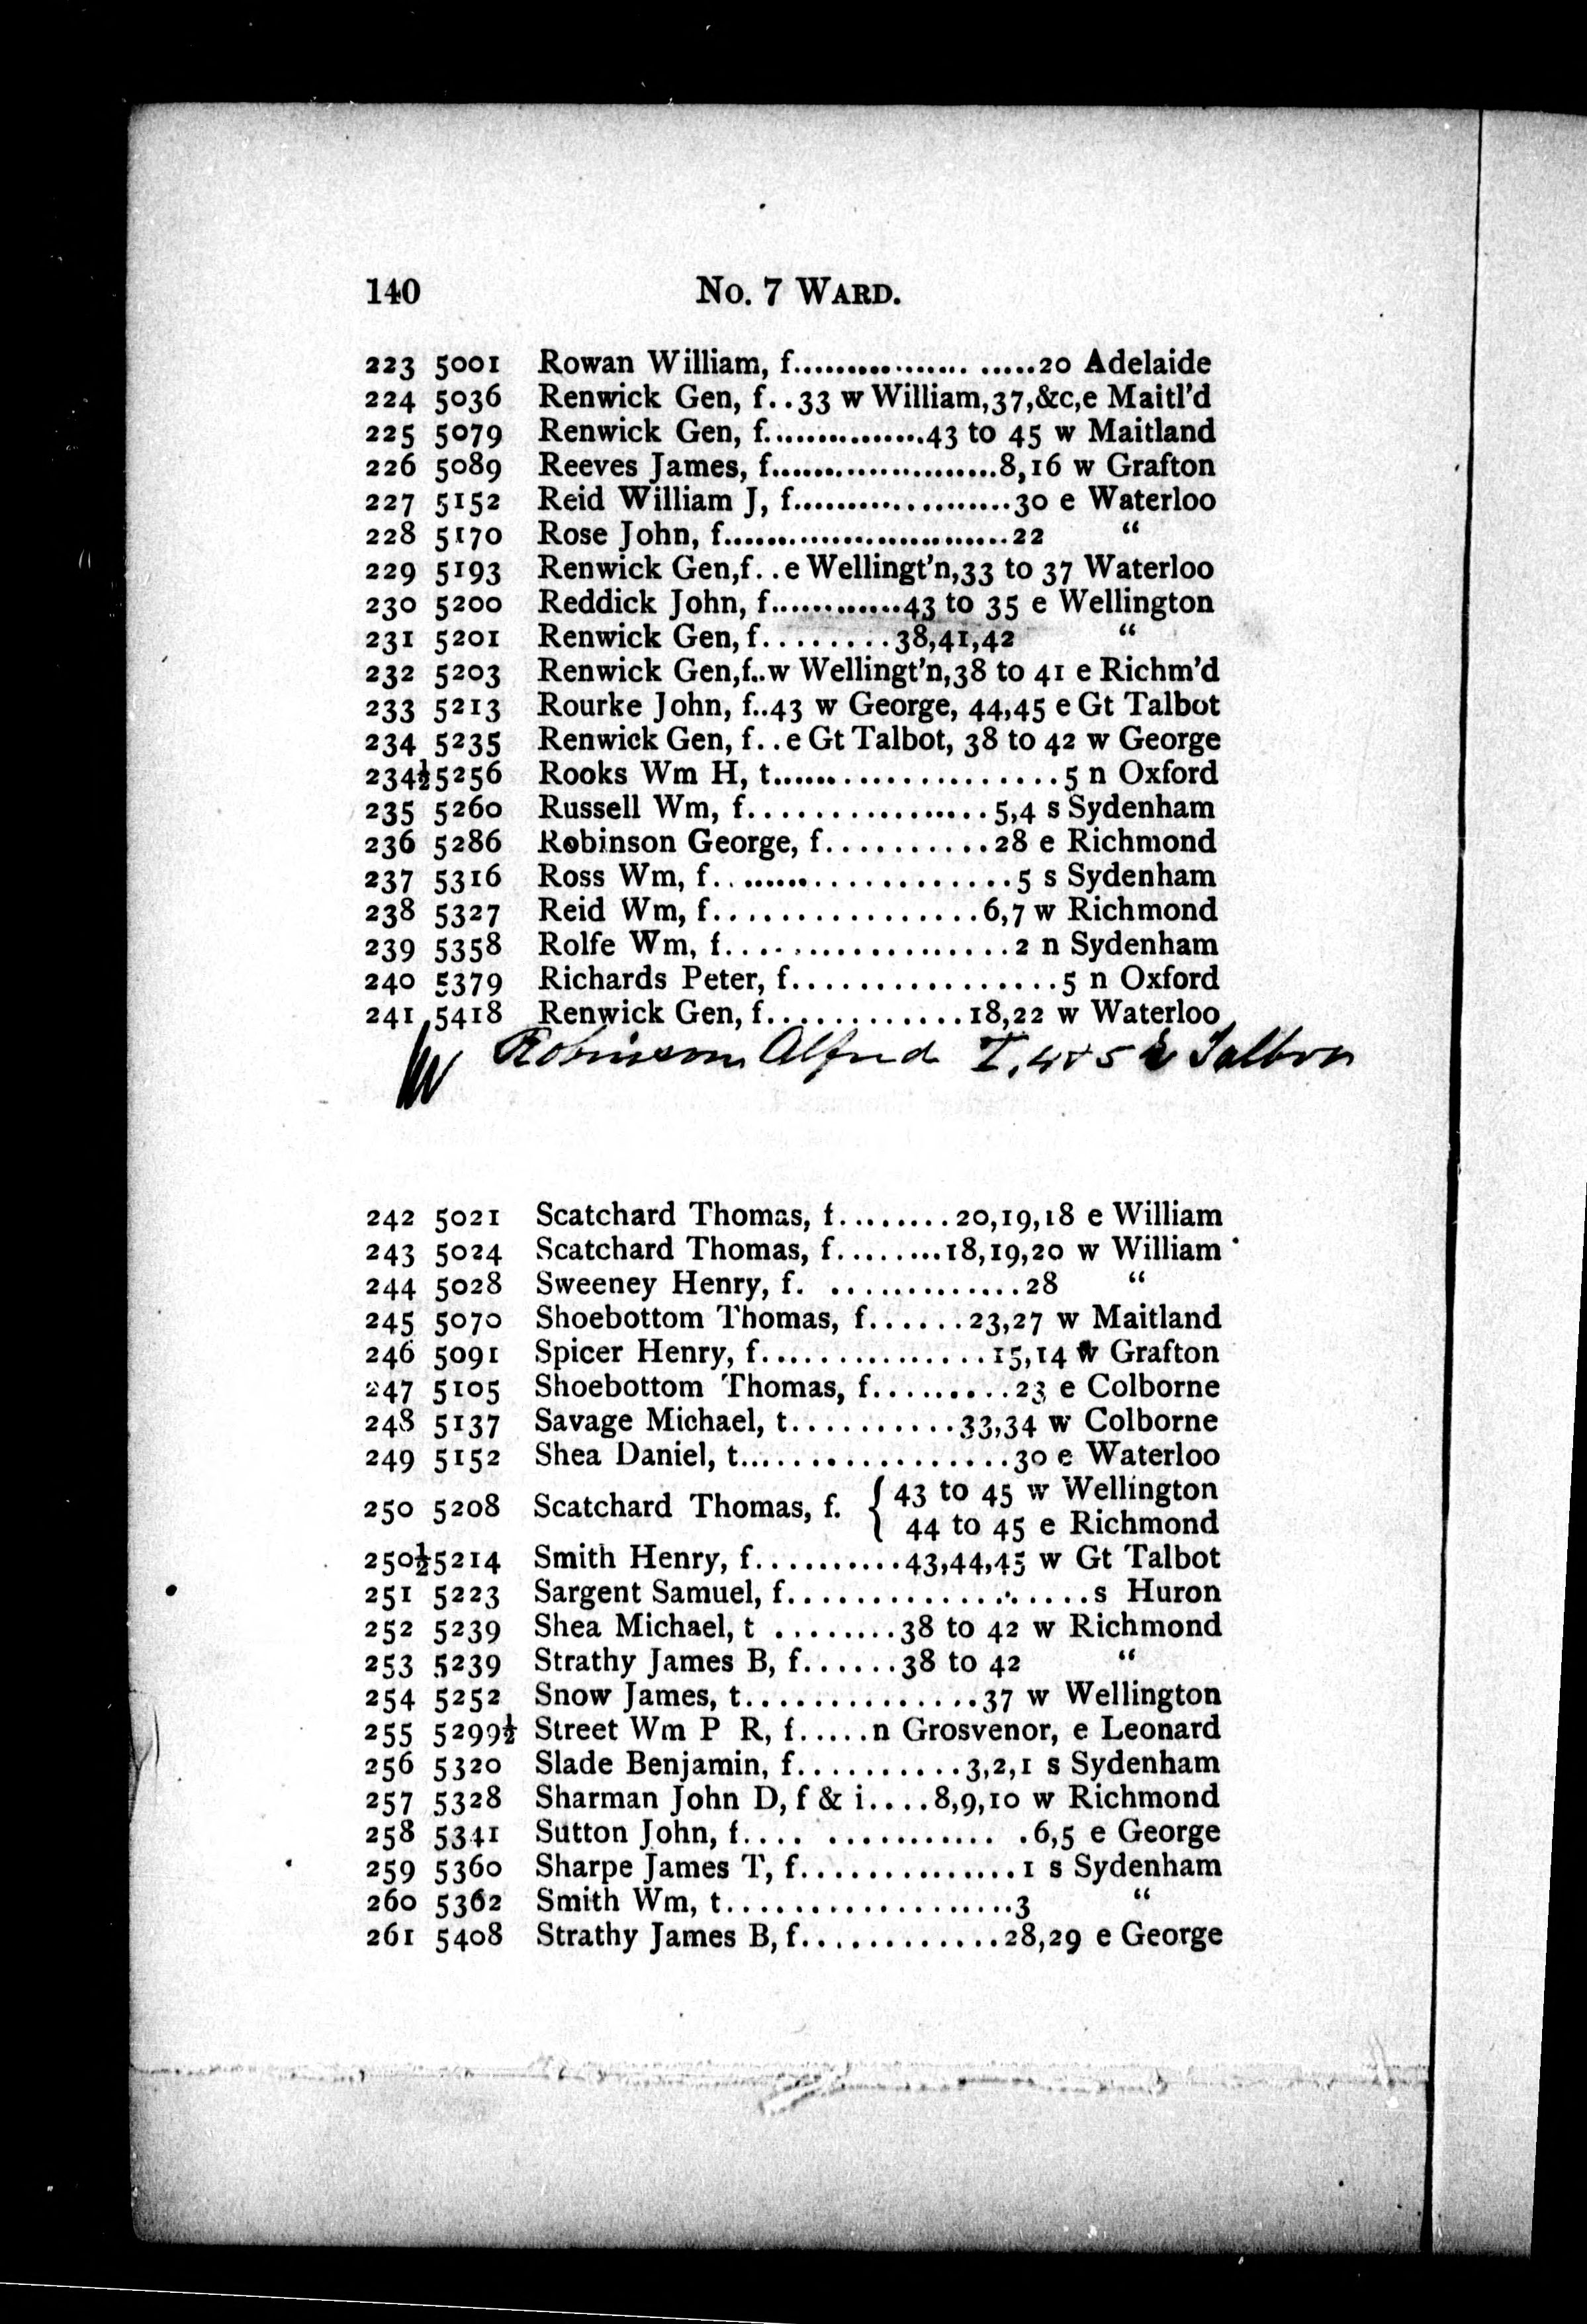 140 No. 7 WARD.
223 5001 Rowan William, f..................... .....20 Adelaide
224 5036 Renwick Gen, f..33 w William,37,&c,e Maitl'd
225 5079 Renwick Gen, f................43 to 45 w Maitland
226 5089 Reeves James, f......................8,16 w Grafton
227 5152 Reid William J, f.....................30 e Waterloo
228 5170 Rose John, f...........................22 “
229 5193 Renwick Gen,f..e Wellingt'n,33 to 37 Waterloo
230 5200 Reddick John, f.............43 to 35 e Wellington
231 5201 Renwick Gen, f.........38,41,42 “
232 5203 Renwick Gen,f..w Wellingt'n,38 to 41 e Richm'd
233 5213 Rourke John, f..43 w George, 44,45 e Gt Talbot
234 5235 Renwick Gen, f..e Gt Talbot, 38 to 42 w George
234½ 5256 Rooks Wm H, t....................5 n Oxford
235 5260 Russell Wm, f..................5,4 s Sydenham
236 5286 Robinson George, f..........28 e Richmond
237 5316 Ross Wm, f......................5 s Sydenham
238 5327 Reid Wm, f................6,7 w Richmond
239 5358 Rolfe Wm, f....................2 n Sydenham
240 5379 Richards Peter, f................5 n Oxford
241 5418 Renwick Gen, f............18,22 w Waterloo
Robinson Alfred T, 4 & 5 Talbot
242 5021 Scatchard Thomas, f.........20,19,18 e William
243 5024 Scatchard Thomas, f........18,19,20 w William
244 5028 Sweeney Henry, f. .............28 “
245 5070 Shoebottom Thomas, f......23,27 w Maitland
246 5091 Spicer Henry, f...............15,14 w Grafton
247 5105 Shoebottom Thomas, f..........23 e Colborne
248 5137 Savage Michael, t...........33,34 w Colborne
249 5152 Shea Daniel, t..................30 e Waterloo
250 5208 Scatchard Thomas, f. { 43 to 45 w Wellington
44 to 45 e Richmond
250½ 5214 Smith Henry, f...........43,44,45 w Gt Talbot
251 5223 Sargent Samuel, f...................s Huron
252 5239 Shea Michael, t ........38 to 42 w Richmond
253 5239 Strathy James B, f......38 to 42 “
254 5252 Snow James, t..............37 w Wellington
255 5299½ Street Wm P R, f.....n Grosvenor, e Leonard
256 5320 Slade Benjamin, f..........3,2,1 s Sydenham
257 5328 Sharman John D, f & i....8,9,10 w Richmond
258 5341 Sutton John, f.... ........... .6,5 e George
259 5360 Sharpe James T, f...............1 s Sydenham
260 5362 Smith Wm, t...................3 “
261 5408 Strathy James B, f............28,29 e George